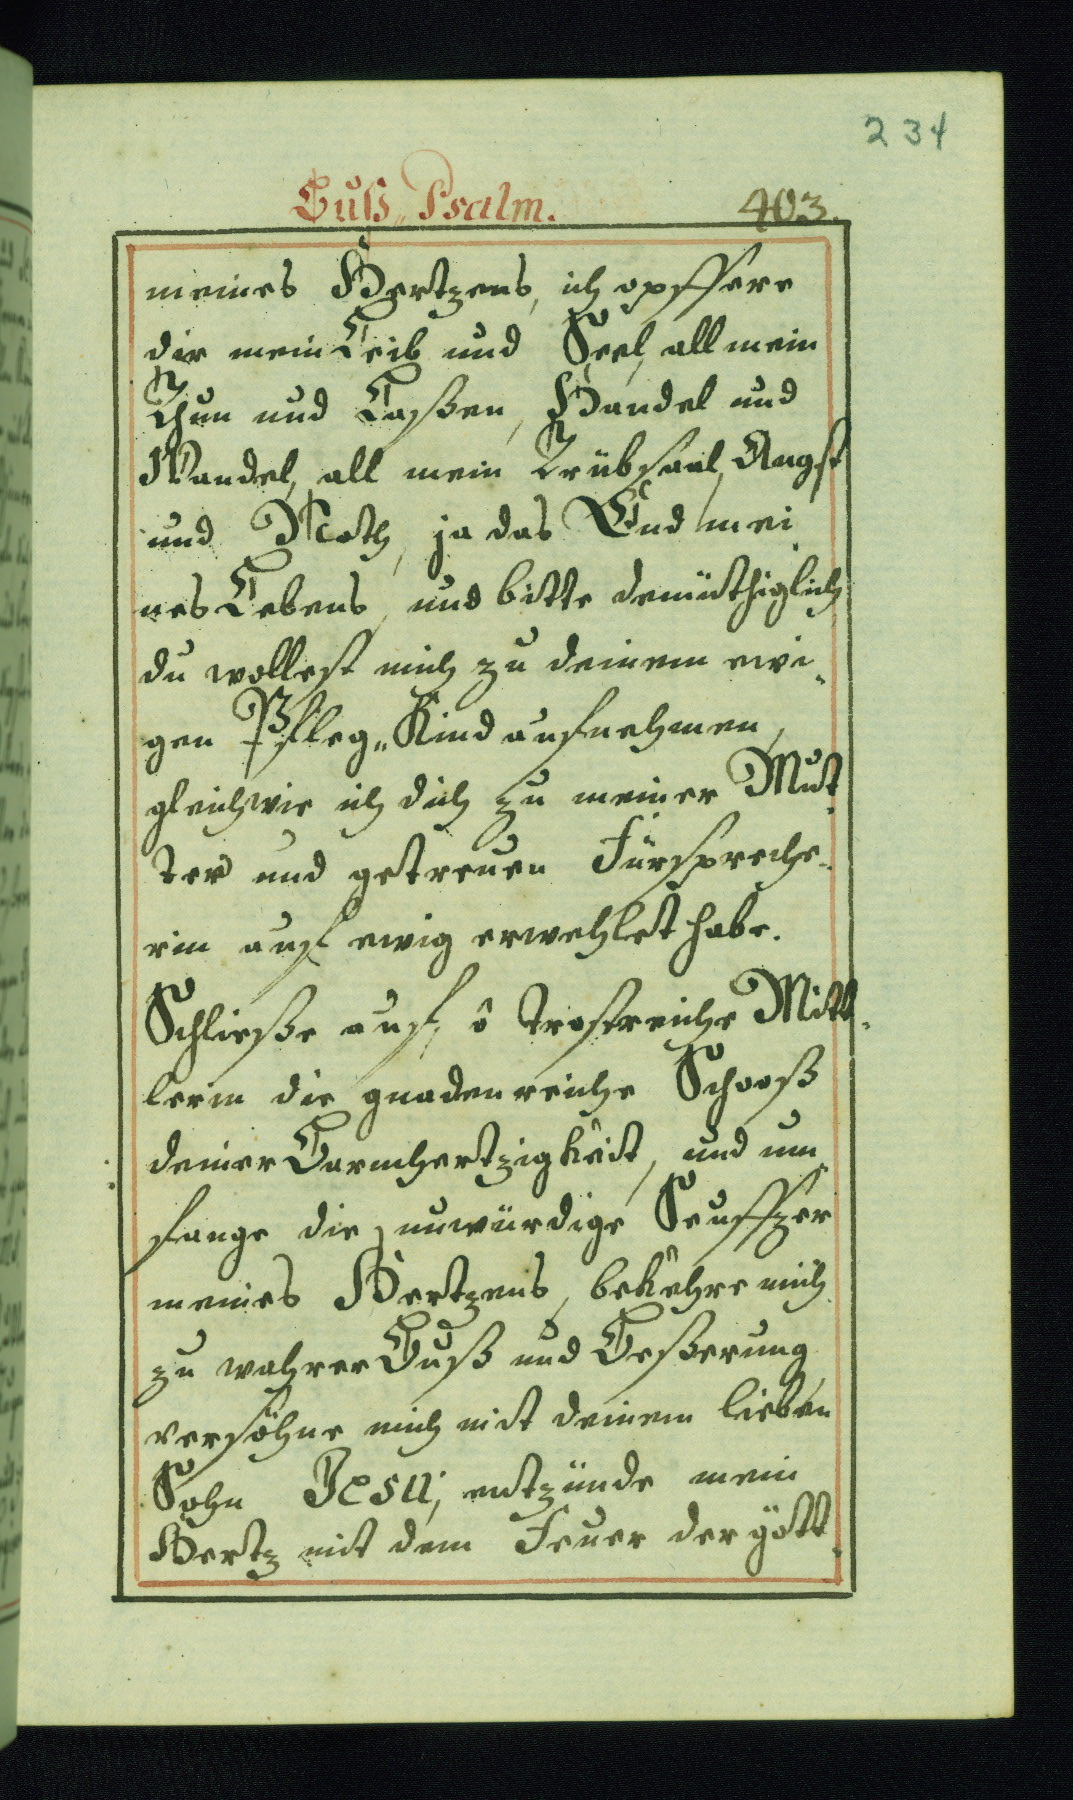 234
Buß„ Psalm. 403.
meines Hertzens, ich opffere
dir mein Leib und Seel, all mein
Thun und Laßen, Handel und
Wandel, all mein Trübsaal, Angst
und Noth, ja das End mei„
nes Lebens, und bitte demüthiglich
du wollest mich zu deinem ewi„
gen Pfleg„Kind aufnehmen,
gleichwie ich dich zu meiner Mut„
ter und getreuen Fürspreche„
rin auf ewig erwehlet habe.
Schließe auf, ô trostreiche Mitt„
lerin die gnadenreiche Schooß
deiner Barmhertzigkeit, und um„
fange die unwürdige Seuffzer
meines Hertzens, bekehre mich
zu wahrer Buß und Beßerung
versöhne mich mit deinem lieben
Sohn Jesu, entzünde mein
Hertz mit dem Feuer der gött„